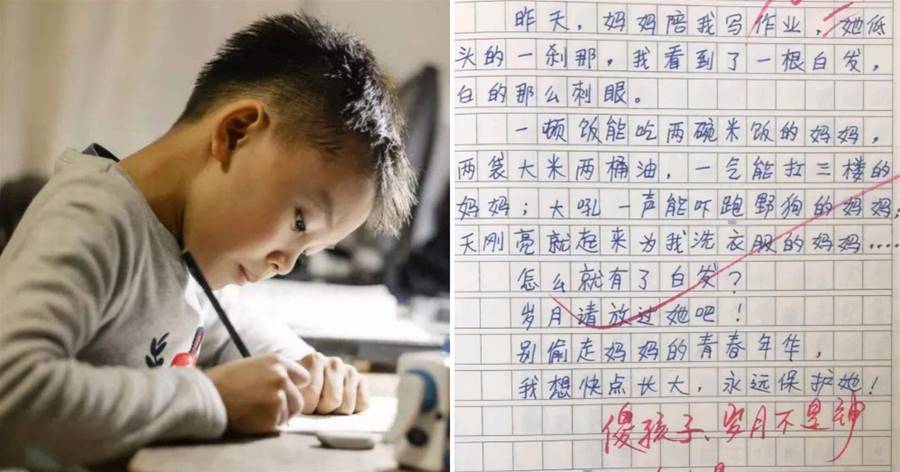 昨天，妈妈陪我写作业，她低
头的一刹那，我看到了一根白发，
白的那么刺眼。
一顿饭能吃两碗米饭的妈妈，
两袋大米两桶油，一气能扛三楼的
妈妈；大吼一声能吓跑野狗的妈妈；
天刚亮就起来为我洗衣服的妈妈····
怎么就有了白发？
岁月请放过她吧！
别偷走妈妈的青春年华，
我想快点长大，永远保护她！
傻孩子、岁月不是神